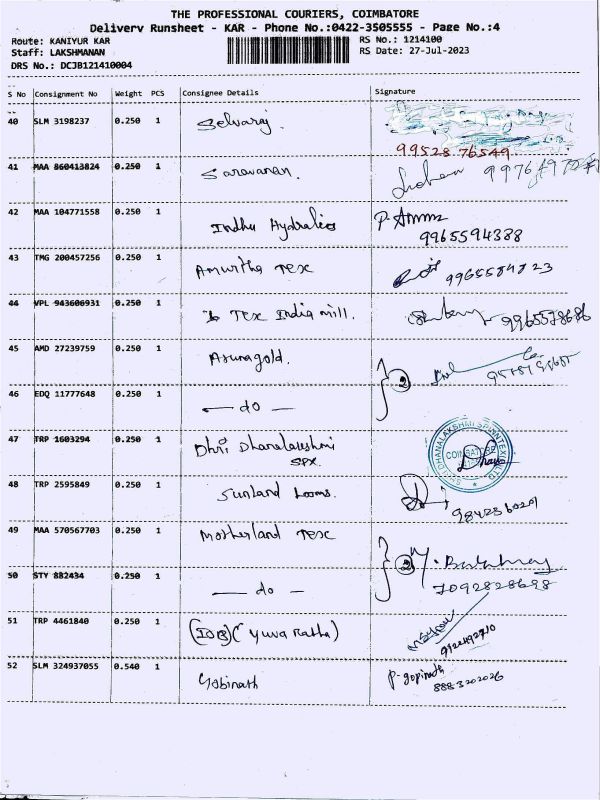 THE PROFESSIONAL COURIERS, COIMBATORE
Delivery Runsheet - KAR - Phone No.:0422-3505555 - Page No.:4
Route: KANIYUR KAR RS No.: 1214100
Staff: LAKSHMANAN RS Date: 27-Jul-2023
DRS No.: DCJB121410004
S No Consignment No Weight PCS Consignee Details Signature
40 SLM 3198237 0.250 1 Selvaraj. 99528 76549
41 MAA 860413824 0.250 1 Saravanan.
42 MAA 104771558 0.250 1 Indhu Hydralics P. Amma
9965594388
43 TMG 200457256 0.250 1 Amurtha Tex
44 VPL 943606931 0.250 1 Tex India mill.
45 AMD 27239759 0.250 1 Asuragold. 2
46 EDQ 11777648 0.250 1 — do —
47 TRP 1603294 0.250 1 Dhri Dhanalakshmi
SPX.
SRI DHANALAKSHMI SPINNTEX
48 TRP 2595849 0.250 1 Sunland Looms.
49 MAA 570567703 0.250 1 Motherland Tex 2
50 STY 882434 0.250 1 — do — 7092828698
51 TRP 4461840 0.250 1 (IOB) (Yuva Ratha)
52 SLM 324937055 0.540 1 Gobinath P. gopinath
8883202026